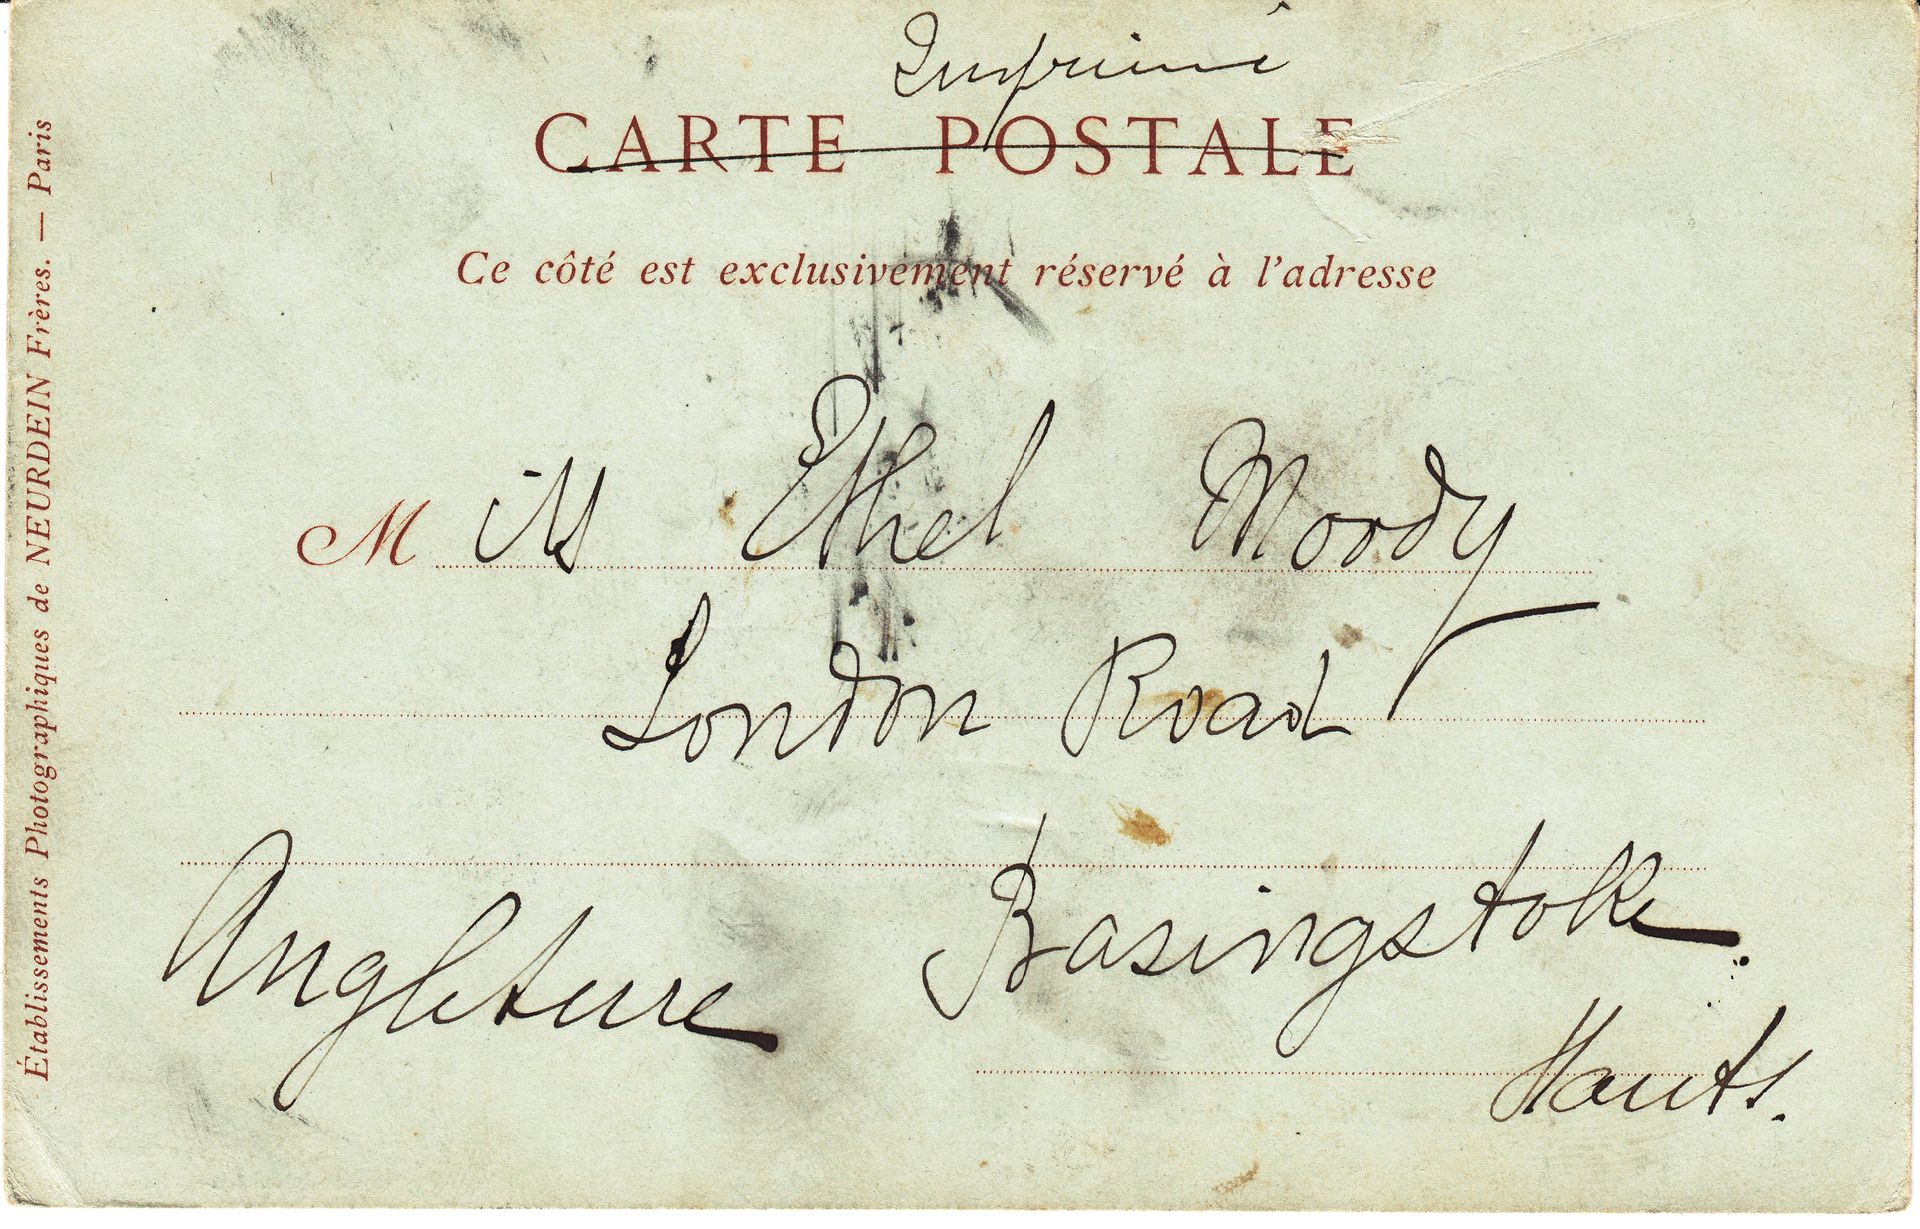 Imprimé
CARTE POSTALE
Ce côté est exclusivement réservé à l'adresse
Miss Ethel Moody
London Road
Basingstoke.
Angleterre
Hants.
Établissements Photographiques de NEURDEIN Frères. — Paris